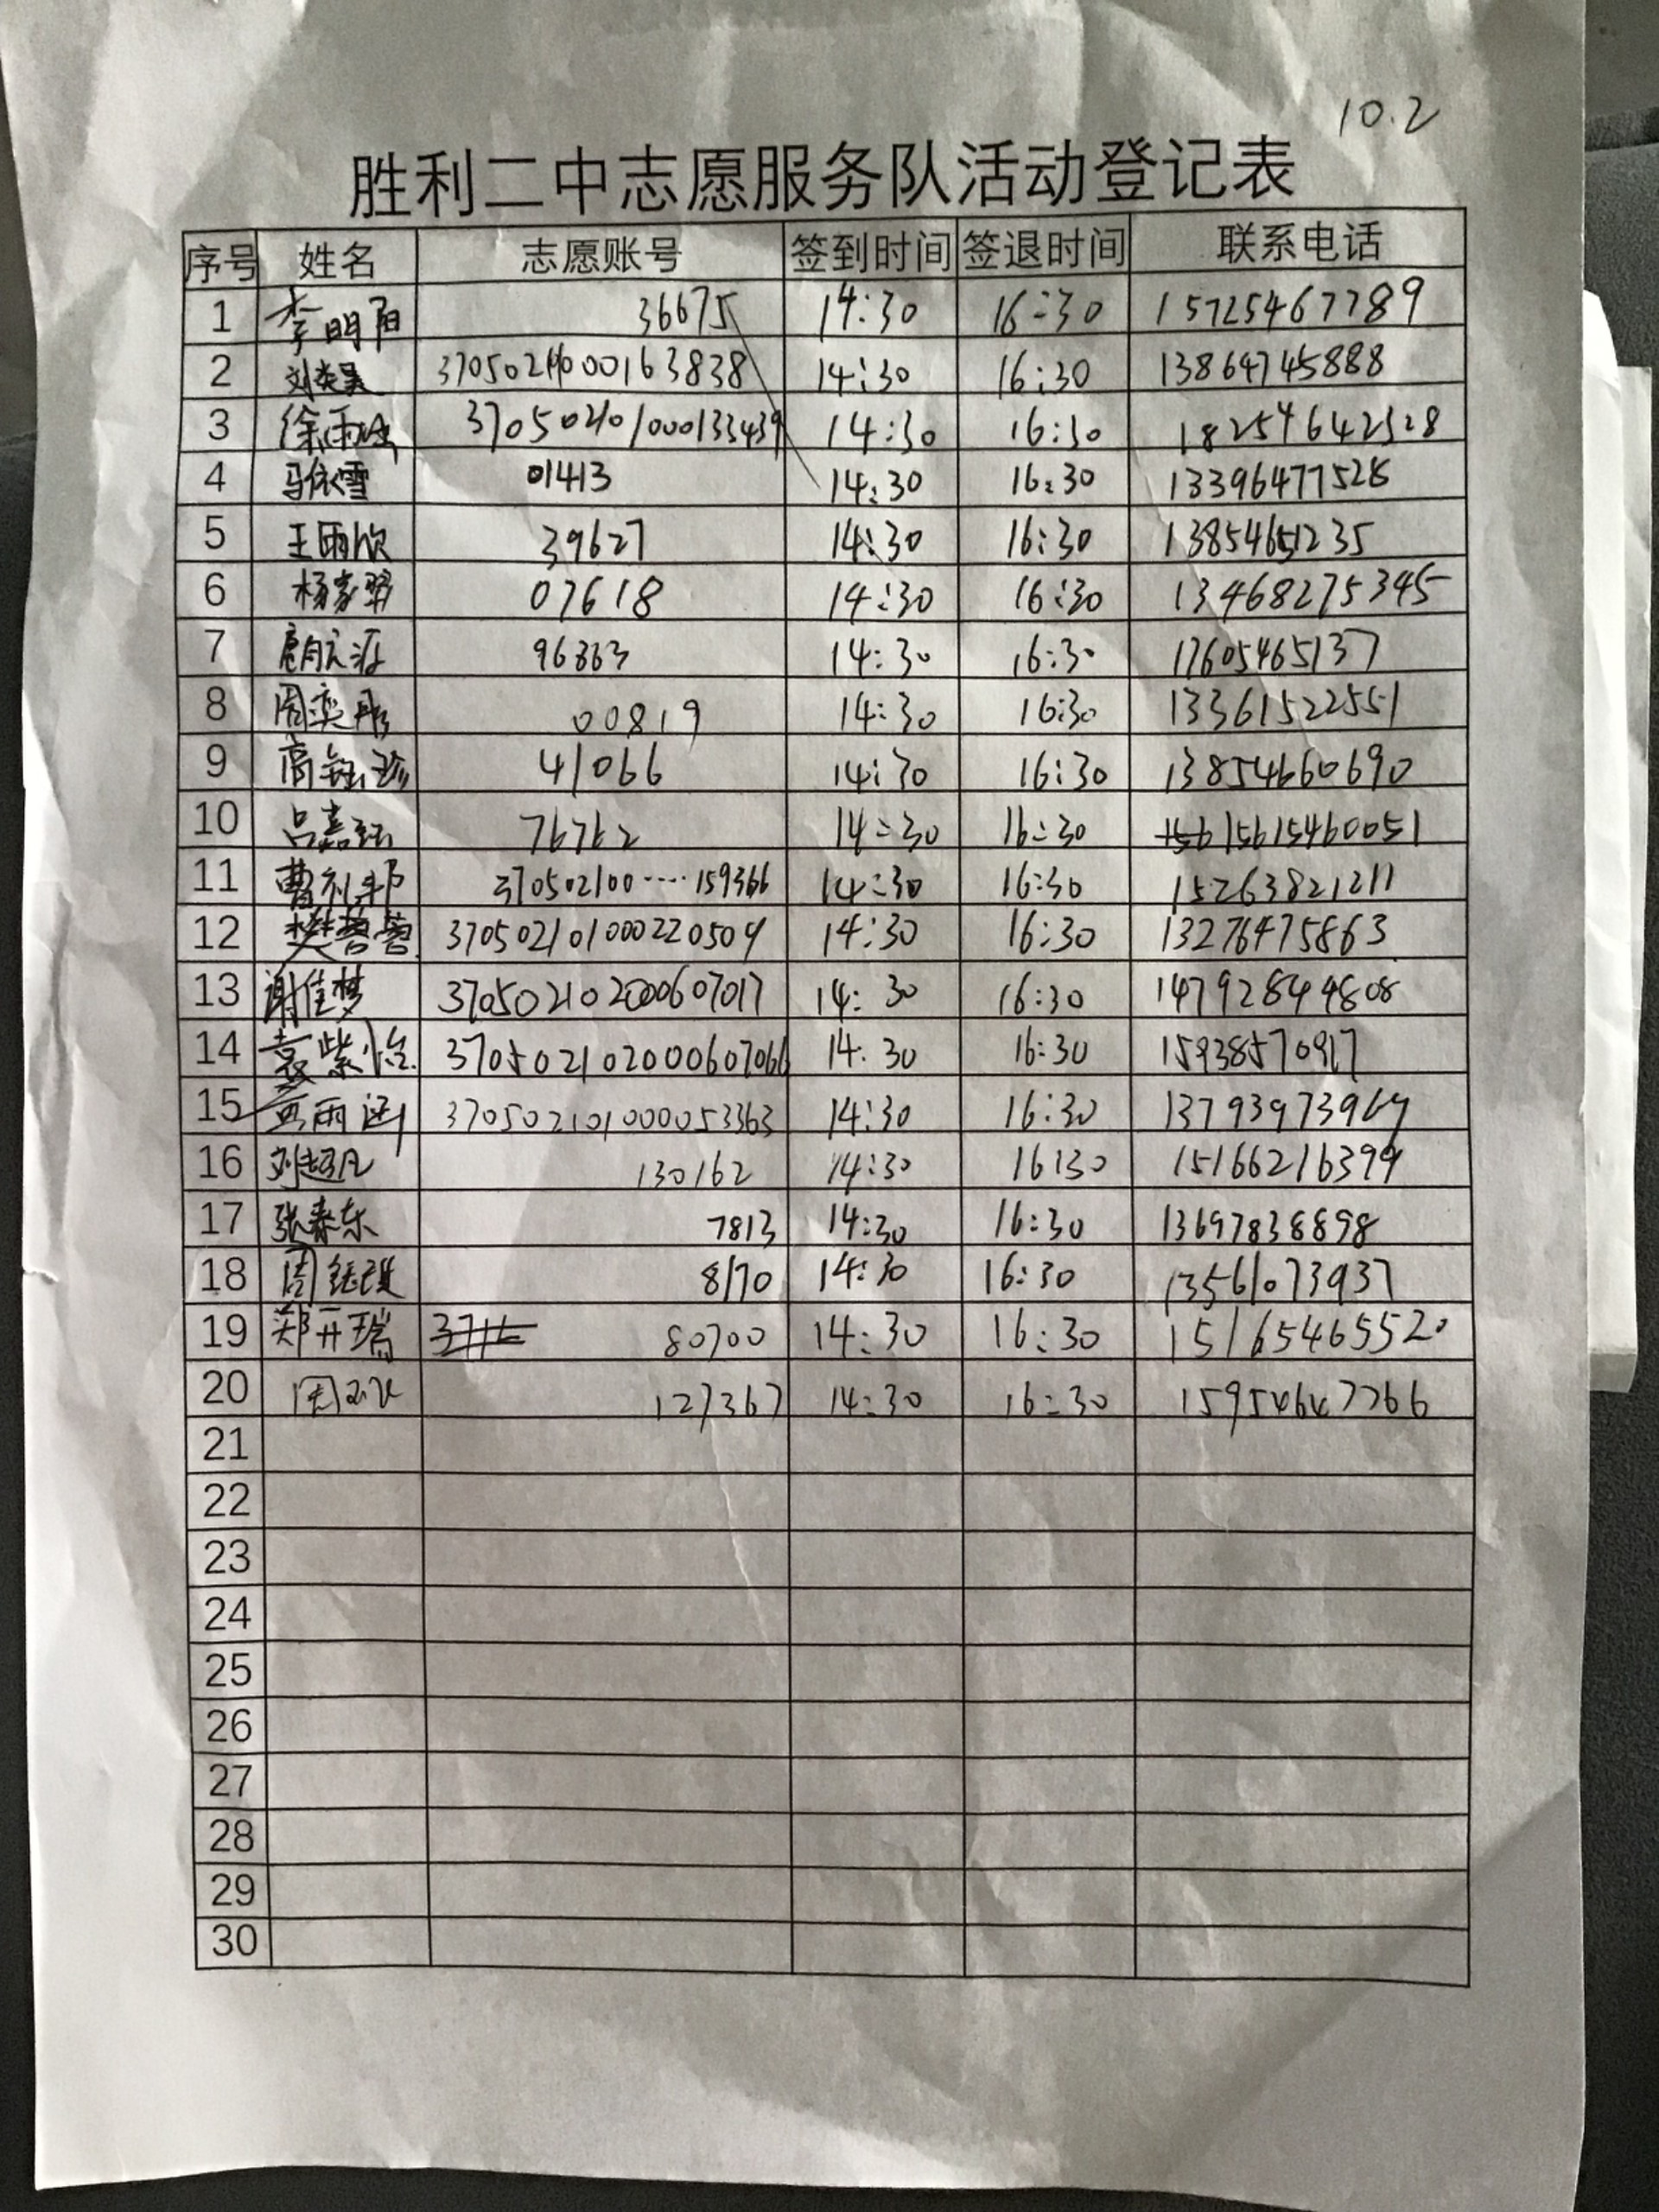 10.2
胜利二中志愿服务队活动登记表
序号 姓名 志愿账号 签到时间 签退时间 联系电话
1 李明阳 36675 14:30 16:30 15725467789
2 刘奕昊 14:30 16:30 13864745888
3 徐雨 14:30 16:30 18254642528
4 马依雪 01413 14:30 16:30 13396477528
5 王雨欣 39627 14:30 16:30 13854651235
6 杨家 07618 14:30 16:30 13468275345
7 96363 14:30 16:30 17605465137
8 周奕彤 00819 14:30 16:30 13361522551
9 高钰珍 41066 14:30 16:30 13854660690
10 吕嘉钰 76762 14:30 16:30 15615460051
11 曹礼邦 370502100····159366 14:30 16:30 15263821211
12 樊 370502101000220509 14:30 16:30 13276475863
13 谢佳梦 3705021020000607017 14:30 16:30 14792844808
14 聂紫怡 3705021020000607066 14:30 16:30 15938570917
15 雨涵 370502101000053363 14:30 16:30 13793973969
16 刘超凡 130162 14:30 16:30 15166216399
17 张泰东 7813 14:30 16:30 13697838898
18 周钰琪 8170 14:30 16:30 13561073937
19 郑丹瑞 80700 14:30 16:30 15165465520
20 周 127367 14:30 16:30 15954647766
21
22
23
24
25
26
27
28
29
30